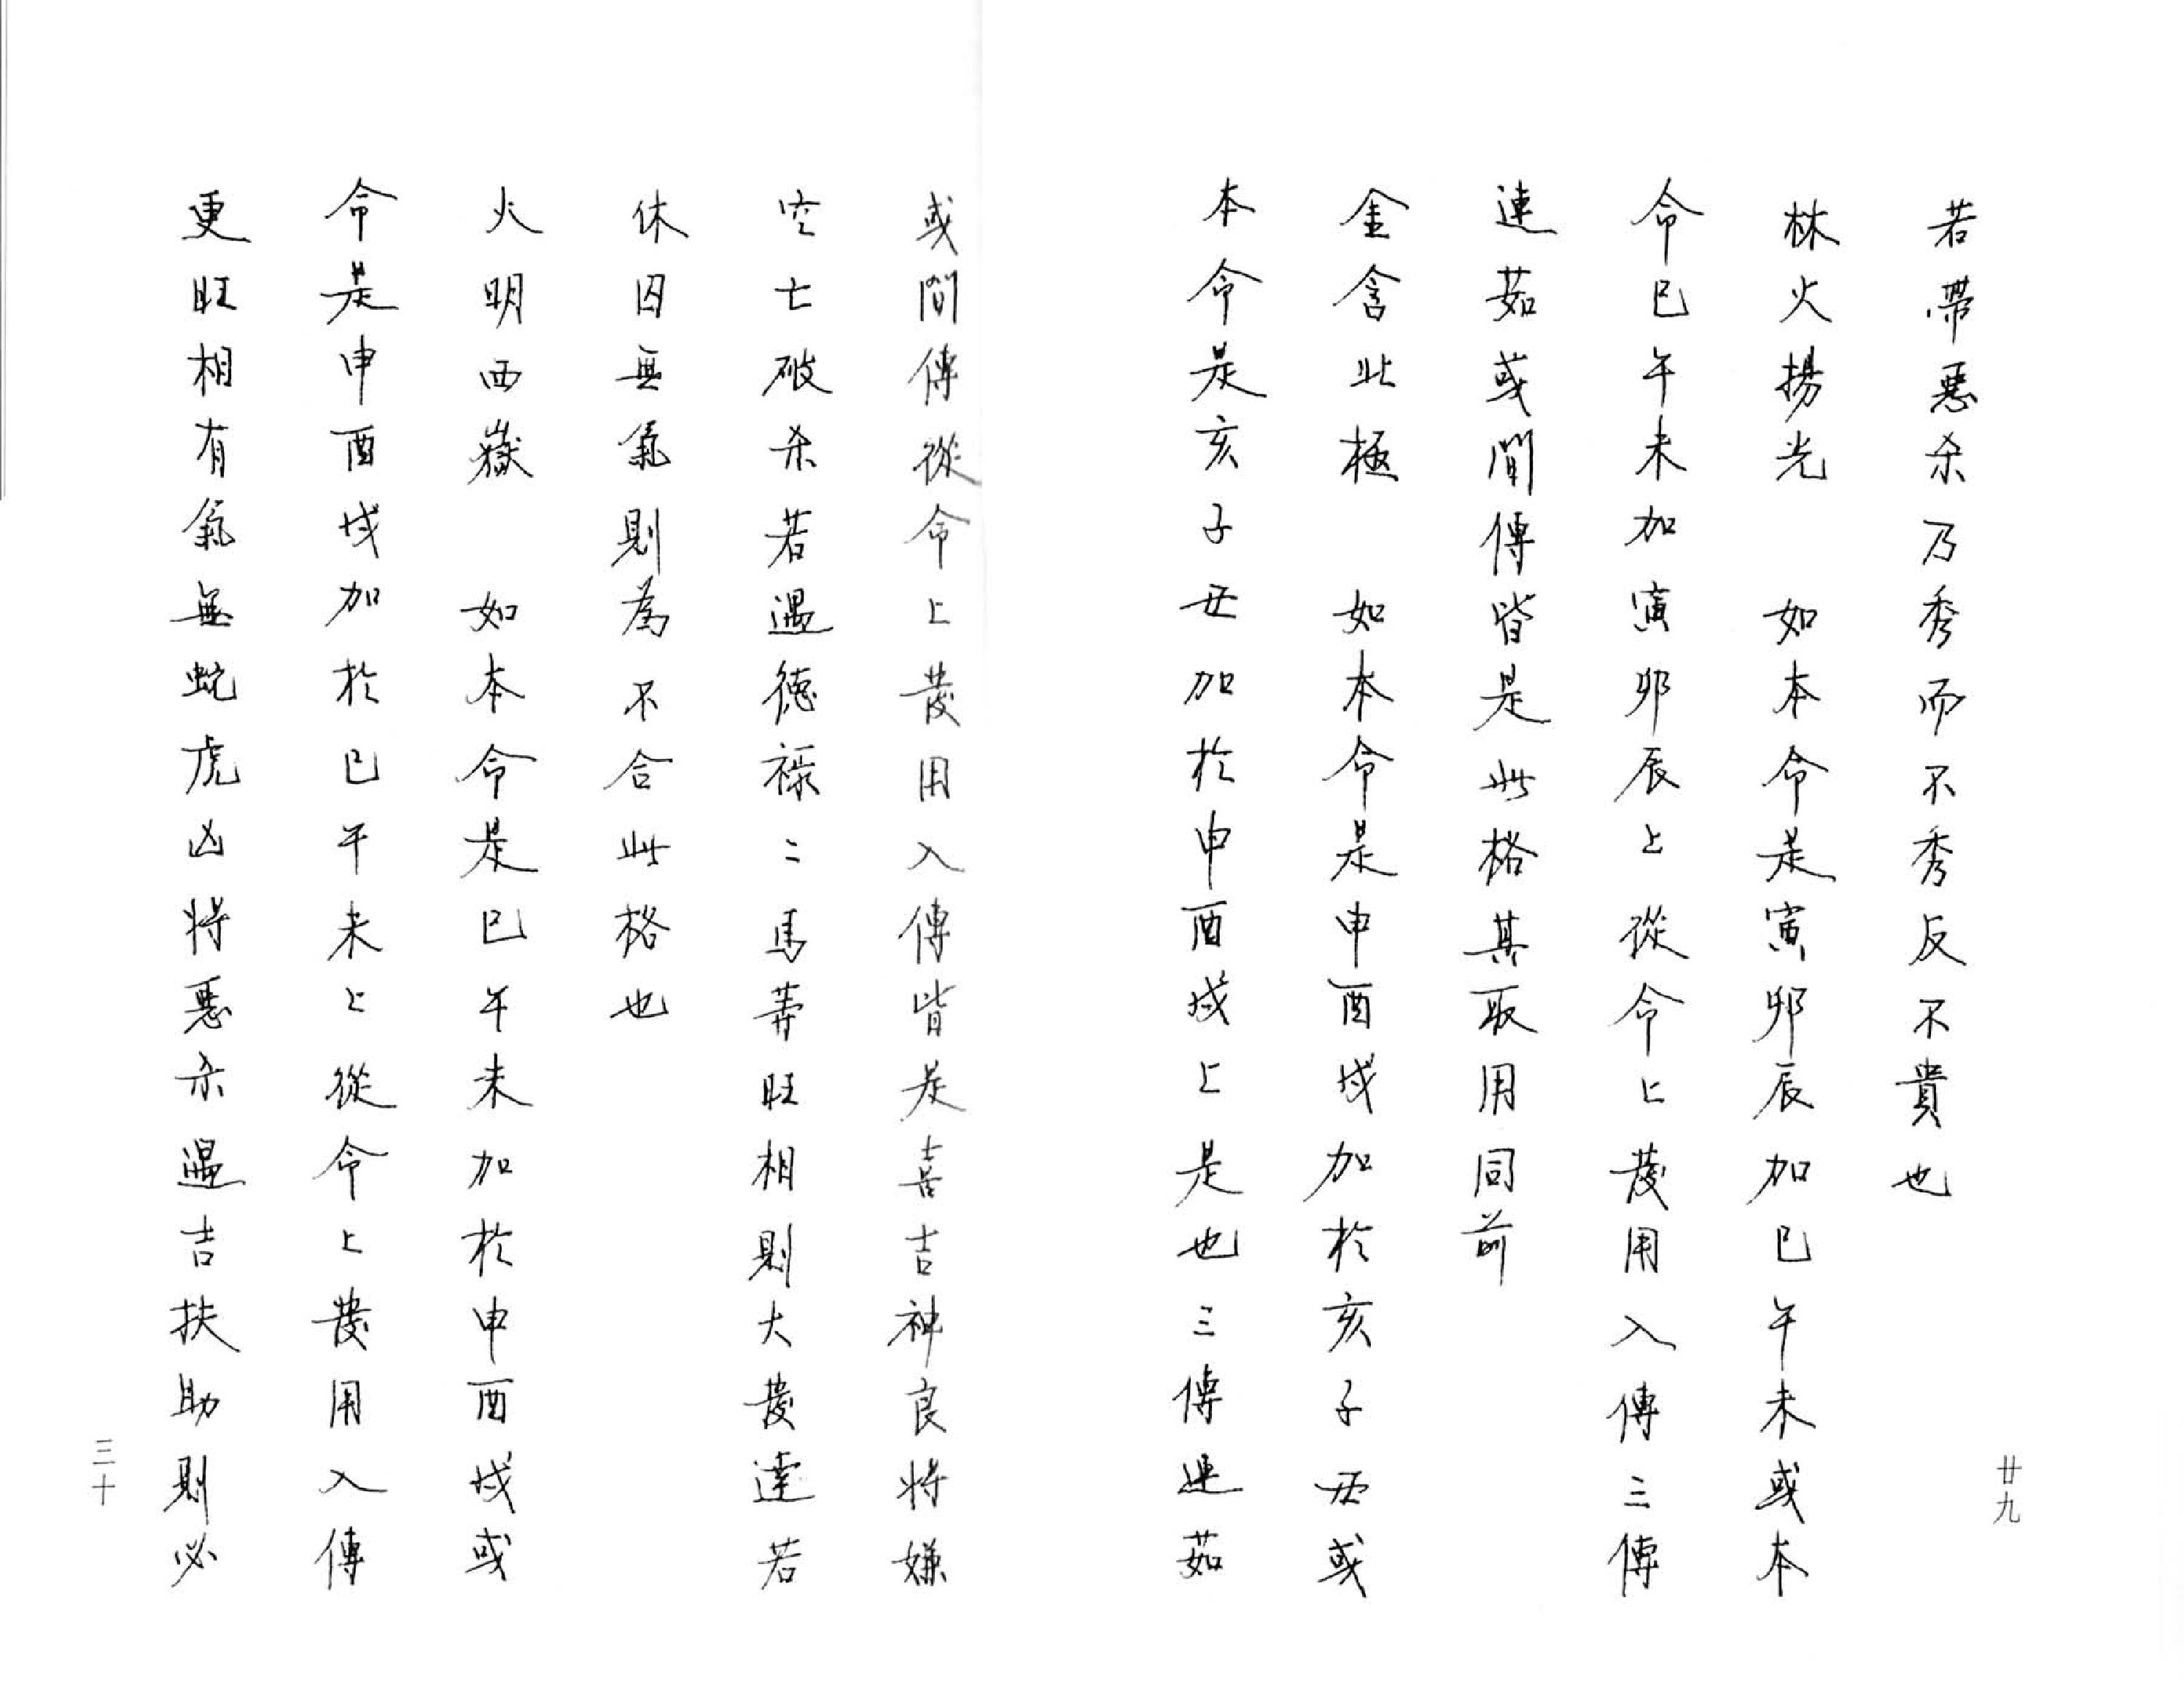 若帶惡杀乃秀而不秀反不貴也
林火揚光　如本命是寅卯辰加巳午未或本
命巳午未加寅卯辰上從命上發用入傳三傳
連茹或間傳皆是此格其取用同前
金含北極　如本命是申酉戌加於亥子丑或
本命是亥子丑加於申酉戌上是也三傳連茹
廿九
或間傳從命上發用入傳皆是喜吉神良將嫌
空亡破杀若遇德祿二馬葊旺相則大發達若
休囚無氣則為不合此格也
火明西嶽　如本命是巳午未加於申酉戌或
命是申酉戌加於巳午未上從命上發用入傳
更旺相有氣無蛇虎凶將惡杀遇吉扶助則必
三十